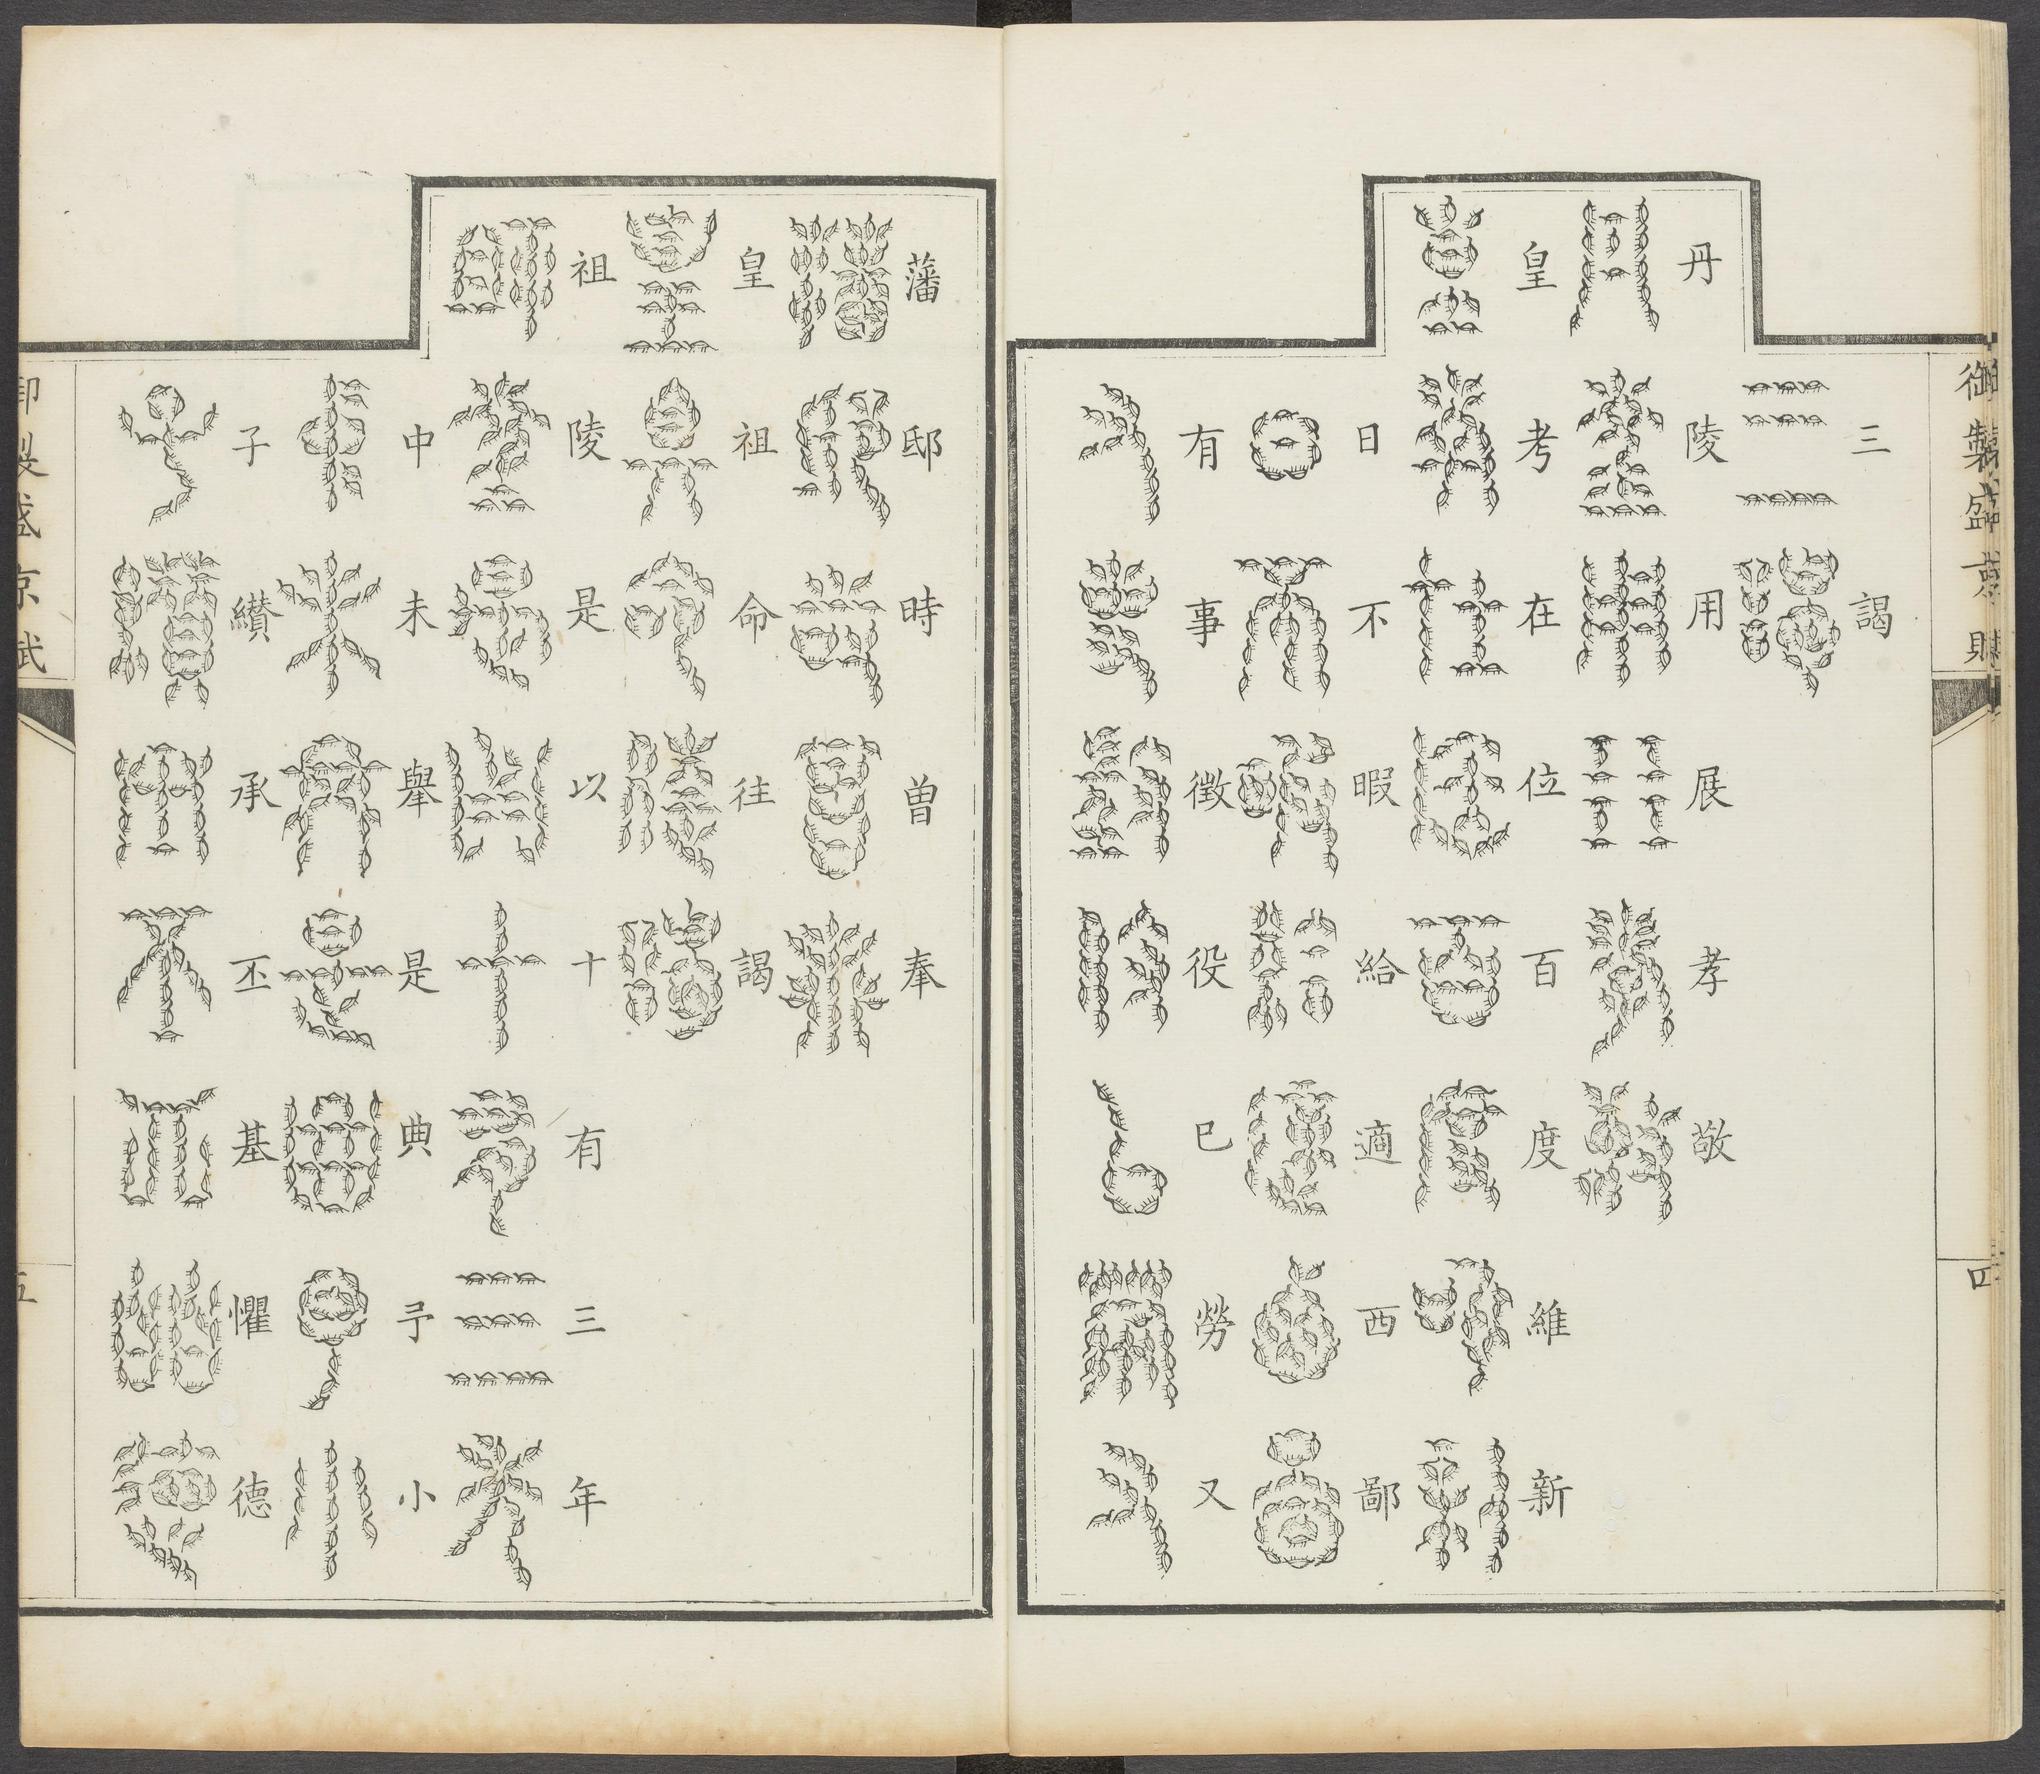 御製盛京賦
四
三謁
丹陵用展孝敬
皇考在位百度維新
日不暇給適西鄙
有事徵役已勞又
藩邸時曾奉
皇祖命往謁
祖陵是以十有三年
中未舉是典予小
子纘承丕基懼德
五